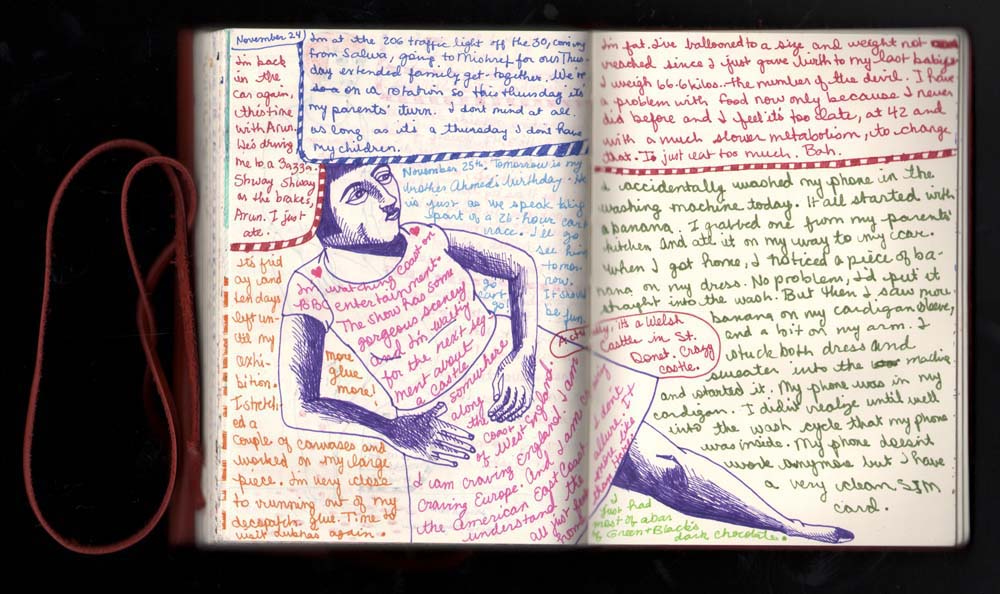 November 24
I'm back
in the
car again,
this time
with Arun.
He's driving
me to a 3azza.
Shway Shway
on the brakes,
Arun. I just
ate.
I'm at the 206 traffic light off the 30, coming
from Salwa, going to Mishref for our Thurs-
day extended family get-together. We're
on a rotation so this thursday it's
my parents' turn. I don't mind at all.
as long as it's a thursday I don't have
my children.
November 25th. Tomorrow is my
brother Ahmed's birthday. He
is just as we speak taking
part in a 26-hour cart
race. I'll go
see him
tomor-
row.
It should
be fun.
go
cart
go!
it's frid
ay and
ten days
left un-
till my
exhi-
bition.
I stretch
ed a
couple of canvases and
worked on my large
piece. I'm very close
to running out of my
decopatch glue. Time to
visit Lubnas again.
more
glue
more!
I'm watching Coast on
BBC entertainment.
The show has some
gorgeous scenery
and I'm waiting
for the next seg-
ment about a
castle
somewhere
along
the
coast
of West England.
I am craving England. I am
craving Europe. And I am
the American East Coast
understand the
all just feel
home
I don't
allure. It
more like
than
Actually, it's a Welsh
Castle in St.
Donat. Crazy
castle.
I just had
most of a bar
of Green + Black's
dark chocolate.
I'm fat. I've ballooned to a size and weight not
reached since I just gave birth to my last baby.
I weigh 66.6 kilos.. the number of the devil. I have
a problem with food now only because I never
did before and I feel it's too late, at 42 and
with a much slower metabolism, to change
that. I just eat too much. Bah.
I accidentally washed my phone in the
washing machine today. It all started with
a banana. I grabbed one from my parents'
kitchen and ate it on my way to my car.
When I got home, I noticed a piece of ba-
nana on my dress. No problem, I'd put it
straight into the wash. But then I saw more
banana on my cardigan sleeve,
and a bit on my arm. I
stuck both dress and
sweater into the machine
and started it. My phone was in my
cardigan. I didn't realize until well
into the wash cycle that my phone
was inside. My phone doesn't
work anymore but I have
a very clean SIM
card.